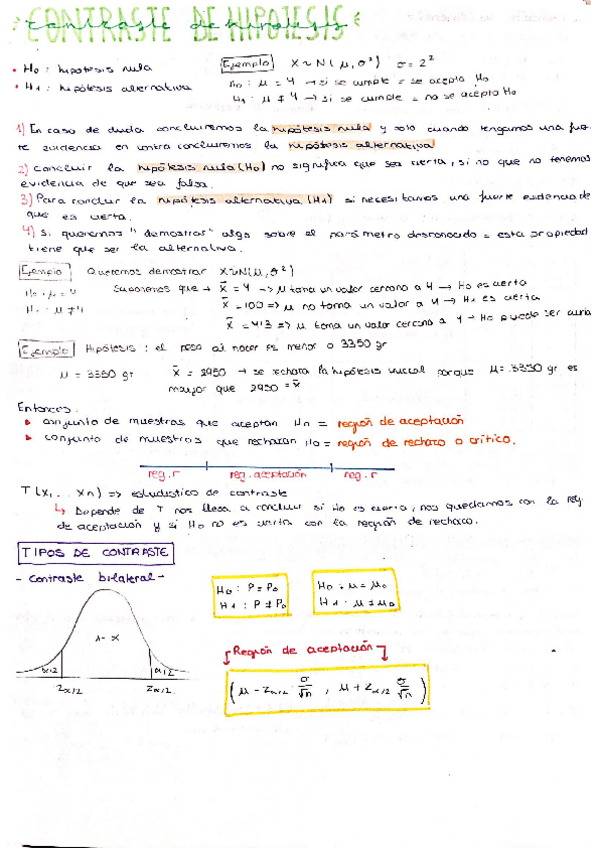 CONTRASTE DE HIPOTESIS
contraste de hipotesis
• H0 : hipotesis nula
• H1 : hipótesis alternativa
Ejemplo X~N(μ, σ²) σ = 2²
H0 : μ = 4 → si se cumple = se acepta H0
H1 : μ ≠ 4 → si se cumple = no se acepta H0
1) En caso de duda concluiremos la hipótesis nula y solo cuando tengamos una fuer
te evidencia en contra concluiremos la hipótesis alternativa
2) concluir la hipótesis nula (H0) no significa que sea cierta, si no que no tenemos
evidencia de que sea falsa.
3) Para concluir la hipótesis alternativa (H1) si necesitamos una fuerte evidencia de
que es cierta.
4) si queremos "demostrar" algo sobre el parámetro desconocido = esta propiedad
tiene que ser la alternativa.
Ejemplo Queremos demostrar X~N(μ, σ²)
H0 : μ = 4
H1 : μ ≠ 4
Suponemos que → x̄ = 4 → μ toma un valor cercano a 4 → H0 es cierta
x̄ = 100 => μ no toma un valor a 4 → H1 es cierta
x̄ = 4'13 => μ toma un valor cercano a 4 → H0 puede ser cierta
Ejemplo Hipótesis : el peso al nacer es menor a 3350 gr
μ = 3350 gr x̄ = 2950 → se rechaza la hipótesis inicial porque μ = 3350 gr es
mayor que 2950 = x̄
Entonces :
conjunto de muestras que aceptan H0 = región de aceptación
conjunto de muestras que rechazan H0 = región de rechazo o crítico.
reg. r reg. aceptación reg. r
T (x1, ... xn) => estadístico de contraste
↳ Depende de T nos lleva a concluir si H0 es cierta, nos quedamos con la reg
de aceptación y si H0 no es cierta con la región de rechazo.
TIPOS DE CONTRASTE
- Contraste bilateral -
H0 : P = P0
H1 : P ≠ P0
H0 : μ = μ0
H1 : μ ≠ μ0
1 - α
α/2 α/2
Zα/2 Zα/2
Región de aceptación
(μ - Zα/2 · σ/√n , μ + Zα/2 σ/√n)